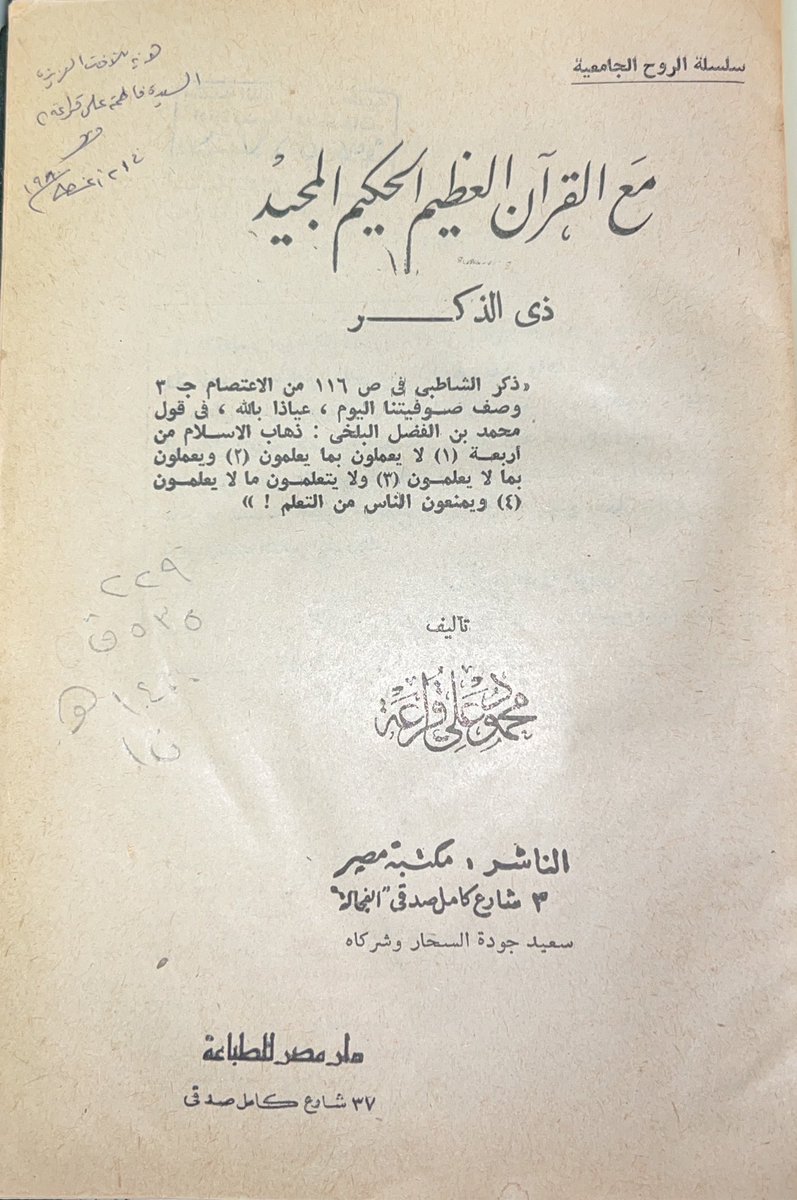 سلسلة الروح الجامعية
السيدة فاطمة على قراعة
مَع القرآن العظيم الحكيم المجيد
ذى الذكر
«ذكر الشاطبى فى ص ١١٦ من الاعتصام جـ ٣
وصف صوفيتنا اليوم ، عياذا بالله ، فى قول
محمد بن الفضل البلخى : ذهاب الاسلام من
أربعة (١) لا يعملون بما يعلمون (٢) ويعملون
بما لا يعلمون (٣) ولا يتعلمون ما لا يعلمون
(٤) ويمنعون الناس من التعلم ! »
٢٢٩
٥٣٥ ق
تأليف
محمود على قراعة
الناشر : مكتبة مصر
٣ شارع كامل صدقى "الفجالة"
سعيد جودة السحار وشركاه
دار مصر للطباعة
٣٧ شارع كامل صدقى